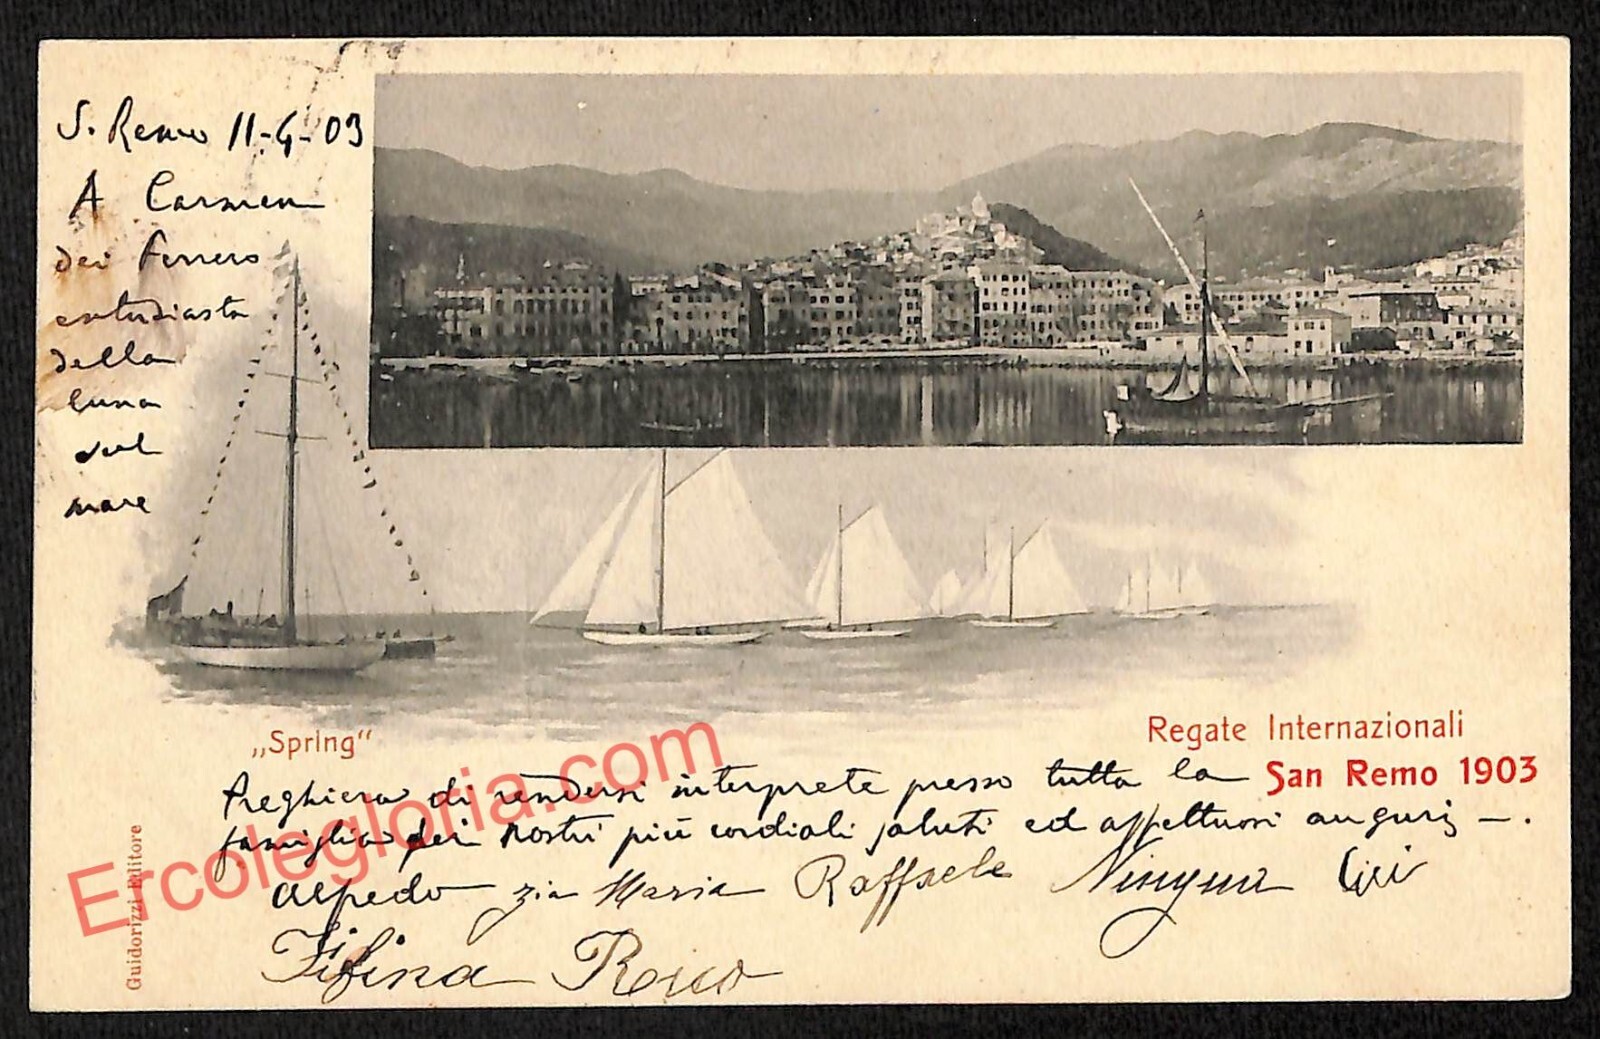 S. Remo 11-4-03
A Carmen
dei Ferrero
entusiasta
della
luna
sul
mare
„Spring“
Regate Internazionali
San Remo 1903
Preghiera di rendersi interprete presso tutta la
famiglia dei nostri più cordiali saluti ed affettuosi auguri - .
zia Maria Raffaele
Fifina
Guidorizzi Editore
Ercolegloria.com